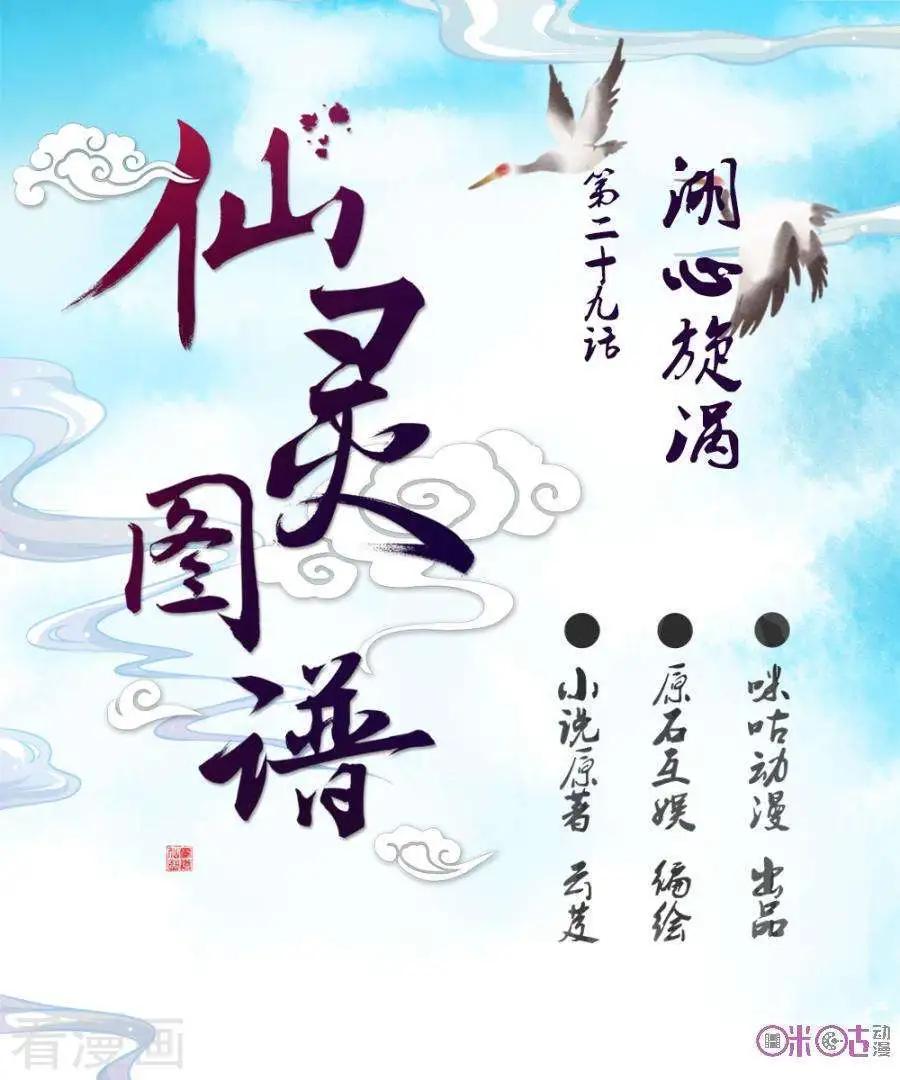 仙灵图谱
第二十九话
湖心旋涡
小说原著 云芨
原石互娱 编绘
咪咕动漫 出品
看漫画
咪咕动漫